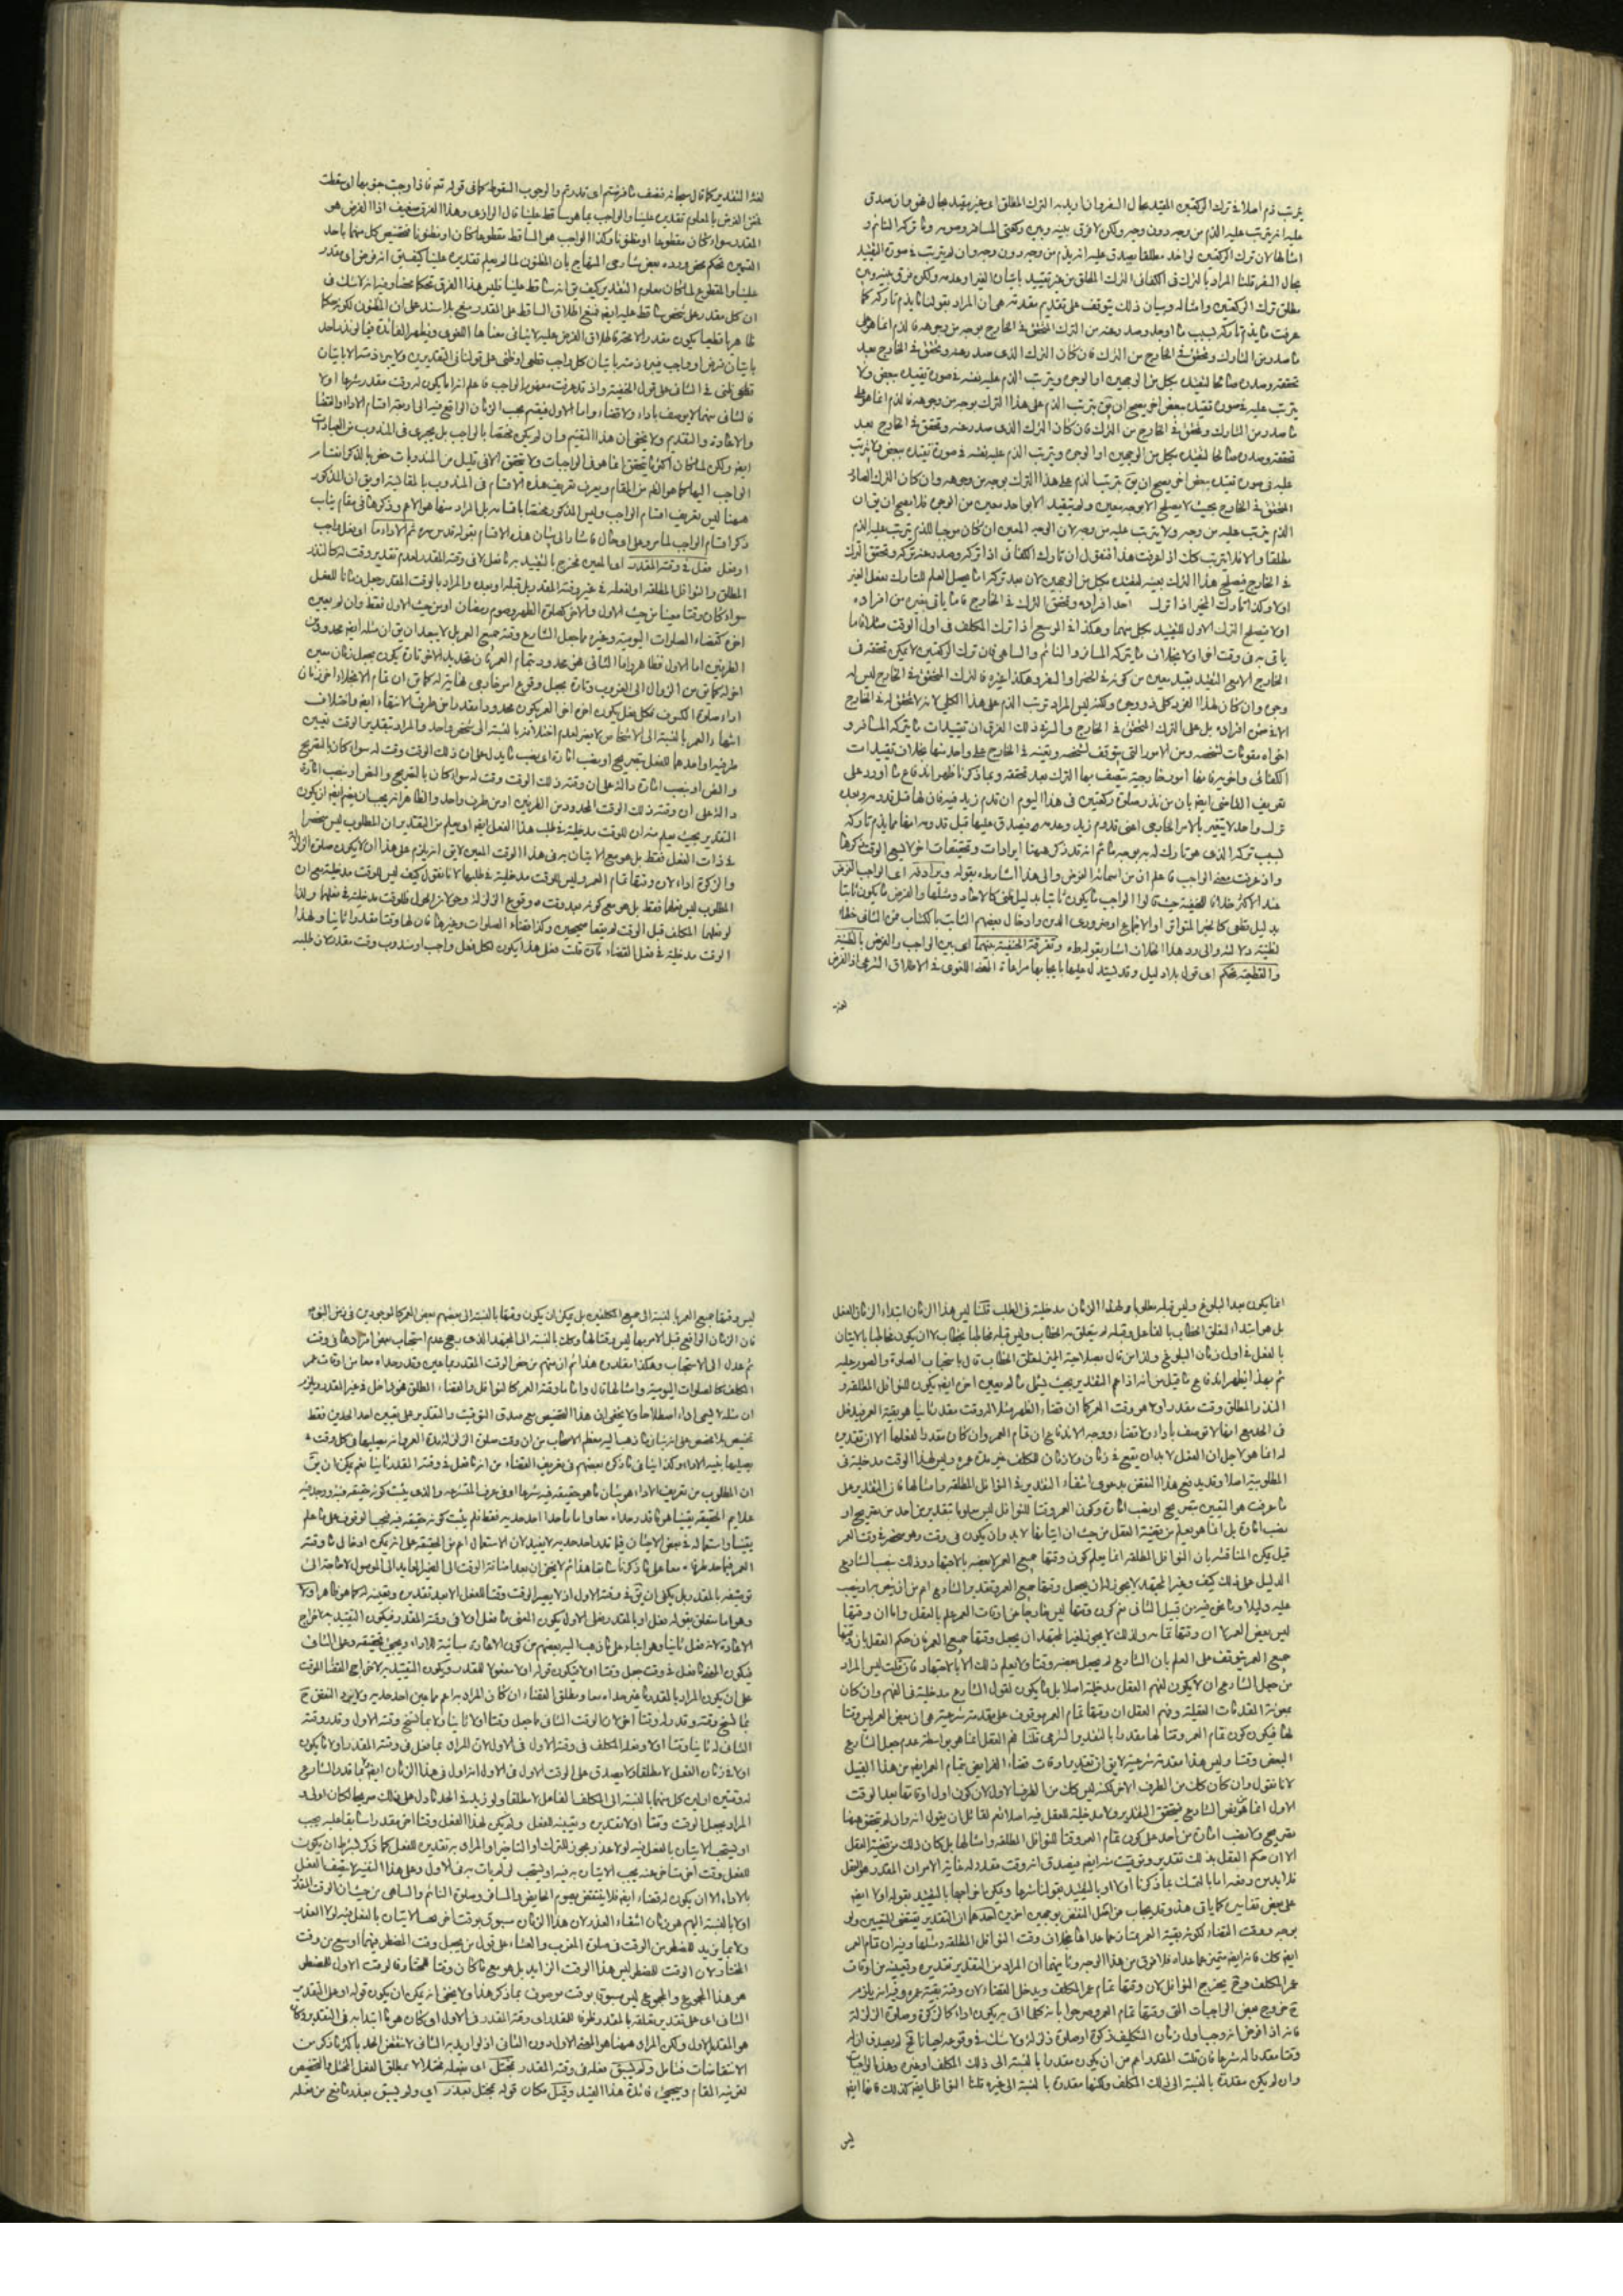 يترتب ذم اصلا في ترك الركعتين المقيد بحال السفر وان اريد به الترك المطلق اى غير مقيد بحال
عليه انه يترتب عليه الذم من وجه دون وجه ولكن لا فرق بينه وبين ركعتى المسافر وصومه وما تركه النائم و
امثالها لان ترك الركعتين لو اخذ مطلقا يصدق عليه انه يذم من وجه دون وجه وان لم يترتب في صورة التقييد
بحال السفر قلنا المراد بالترك في الكفائى الترك المطلق من غير تقييد باتيان الغير او عدمه ولكن فرق بينه وبين
مطلق ترك الركعتين وامثاله وبيان ذلك يتوقف على تقديم مقدمة هى ان المراد بقولنا ما يذم تاركه كما
عرفت ما يذم تاركه بسبب ما اوجد وصدر عنه من الترك المحقق في الخارج بوجه من وجوهه فالذم انما هو على
ما صدر من التارك وتحقق في الخارج من الترك فان كان الترك الذى صدر عنه وتحقق في الخارج بعد
تحققه وصدوره صالحا لتقييده بكل من الوجهين او الوجوه ويترتب الذم عليه نفسه في صورة تقييده ببعض ولا
يترتب عليه في صورة تقييده ببعض اخر يصح ان يق يترتب الذم على هذا الترك بوجه من وجوهه فالذم انما هو على
ما صدر من التارك وتحقق في الخارج من الترك فان كان الترك الذى صدر عنه وتحقق في الخارج بعد
تحققه وصدوره صالحا لتقييده بكل من الوجهين او الوجوه ويترتب الذم عليه نفسه في صورة تقييده ببعض ولا يترتب
عليه في صورة تقييده ببعض اخر يصح ان يق يترتب الذم على هذا الترك بوجه من وجوهه وان كان الترك الصادر
المحقق في الخارج بحيث لا يصلح الا لوجه معين ولم يتقيد الا بواحد معين من الوجوه فلا يصح ان يق ان
الذم يترتب عليه من وجه ولا يترتب عليه من وجه لان الوجه المعين ان كان موجبا للذم يترتب عليه الذم
مطلقا والا فلا يترتب كك اذا عرفت هذا فنقول ان تارك الكفائى اذا تركه وصدر عنه تركه وتحقق الترك
في الخارج فيصلح هذا الترك بعينه لتقييده بكل من الوجهين لان بعد تركه اما يحصل العلم للتارك بفعل الغير
اولا وكذا تارك المخير اذا ترك احد افراده وتحقق الترك في الخارج فاما ياتى بغيره من افراده
اولا فيصلح الترك الاول للتقييد بكل منهما وهكذا في الموسع اذا ترك المكلف في اول الوقت مثلا فاما
ياتى به في وقت اخر اولا بخلاف ما يتركه المسافر والنائم والساهى فان ترك الركعتين لا يمكن تحققه في
الخارج الا مع التقييد بقيد معين من كونه في الحضر او السفر وهكذا غيره فالترك المحقق في الخارج ليس له
وجوه وان كان لهذا الفرد كلى ذو وجوه ولكن ليس المراد ترتب الذم على هذا الكلى لانه لا تحقق له في الخارج
الا في ضمن افراده بل على الترك المحقق في الخارج والسر في ذلك الفرق ان تقييدات ما يتركه المسافر و
اخواه مقومات لشخصه ومن الامور التى يتوقف تشخصه وتعينه في الخارج على واحد منها بخلاف تقييدات
الكفائى واخويه فانها امور خارجية يتصف بها الترك بعد تحققه وبما ذكرنا ظهر اندفاع ما اورد على
تعريف القاضى ايضا بان من نذر صلوة ركعتين في هذا اليوم ان قدم زيد فيه فان لها قبل قدومه وبعده
ترك واحد لا يتغير بالامر الخارجى اعنى قدوم زيد وعدمه فيصدق عليها قبل قدومه انها مما يذم تاركه
بسبب تركه الذى هو تارك له بوجه ما ثم انه قد ذكر ههنا ايرادات وتحقيقات اخر لا يسع الوقت ذكرها
واذ عرفت معنى الواجب فاعلم ان من اسمائه الفرض والى هذا اشار بقوله ويرادفه اى الواجب الفرض
عند الاكثر خلافا للحنفية حيث قالوا الواجب ما يكون ثابتا بدليل ظنى كالاحاد ومثلها والفرض ما يكون ثابتا
بدليل قطعى كالخبر المتواتر او الاجماع او ضرورى الدين وادخال بعضهم الثابت بالكتاب في الثانى خطأ
لظنية دلالته والى رد هذا الخلاف اشار بقوله وتفرقة الحنفية بينهما اى بين الواجب والفرض بالظنية
والقطعية تحكم اى قول بلا دليل وقد يستدل عليها بايجابها مراعاة المعنى اللغوى في الاطلاق الشرعى اذ الفرض
لغة
لغة التقدير كما قال سبحانه فنصف ما فرضتم اى قدرتم والوجوب السقوط كما في قوله تعم فاذا وجبت جنوبها اى سقطت
فخص الفرض بالمعلوم تقديره علينا والواجب بما هو ساقط علينا قال الرازى وهذا الفرق ضعيف اذ الفرض هو
المقدر سواء كان مقطوعا او مظنونا وكذا الواجب هو الساقط مقطوعا كان او مظنونا فتخصيص كل منهما باحد
القسمين تحكم محض ورده بعض شارحى المنهاج بان المظنون لما لم يعلم تقديره علينا كيف يق انه فرض اى مقدر
علينا والمقطوع لما كان معلوم التقدير كيف يق انه ساقط علينا فليس هذا الفرق تحكما محضا وفيه انه لا شك في
ان كل مقدر على شخص ساقط عليه ايضا فمنع اطلاق الساقط على المقدر منع بلا سند على ان المظنون لكونه حكما
ظاهريا قطعيا يكون مقدرا لا محالة فاطلاق الفرض عليه لا ينافى معناها اللغوى ويظهر الفائدة فيما لو نذر احد
باتيان فرض او واجب فيبرء ذمته باتيان كل واجب قطعى او ظنى على قولنا في التقديرين ولا يبرء ذمته الا باتيان
قطعى ظنى في الثانى على قول الحنفية واذ قد عرفت مفهوم الواجب فاعلم انه اما يكون له وقت مقدر شرعا اولا
فالثانى منهما لا يوصف باداء ولا قضاء واما الاول فينقسم بحسب الزمان الواقع فيه الى اربعة اقسام الاداء والقضاء
والاعادة والتقديم ولا يخفى ان هذا التقسيم وان لم يكن مختصا بالواجب بل يجرى في المندوب من العبادات
ايضا ولكن لما كان اكثر ما يتحقق انما هو في الواجبات ولا تتحقق الا في قليل من المندوبات خص بالذكر
الواجب اليها كما هو اللايق من المقام ويعرف تعريف هذه الاقسام في المندوب بالمقايسة او يق ان المذكور
ههنا ليس تعريف اقسام الواجب وليس المذكور مختصا باقسامه بل المراد منها هو الاعم وذكرها في مقام يناسب
ذكر اقسام الواجب لما مر وعلى اى حال فاشار الى بيان هذه الاقسام بقوله قدس سره ثم الاداء ما اى فعل واجب
او فعل فعل في وقته المقدر اى المعين فخرج بالتقييد به ما فعل لا في وقته المقدر لعدم تقدير وقت له كالنذر
المطلق والنوافل المطلقة او لفعله في غير وقته المقدر بل قبله او بعده والمراد بالوقت المقدر ما جعل زمانا للفعل
سواء كان وقتا معينا من حيث الاول والاخر كصلوة الظهر وصوم رمضان او من حيث الاول فقط وان لم يعين
اخره كقضاء الصلوات اليومية وغيره مما جعل الشارع وقته جميع العمر بل لا يبعد ان يق ان مثله ايضا محدود من
الطرفين اما الاول فظاهر واما الثانى فهو محدود بتمام العمر فان تحديد الاخر تارة يكون بجعل زمان معين
اخر له كما يق من الزوال الى الغروب وتارة بجعل وقوع امر خارجى نهاية له كما يق ان تمام الانجلاء اخر زمان
اداء صلوة الكسوف فكل فعل يكون اخره اخر العمر يكون محدودا مقدرا من طرف الانتهاء ايضا واختلاف
انتهاء العمر بالنسبة الى الاشخاص لا يضر لعدم اختلافه بالنسبة الى شخص واحد والمراد بتقدير الوقت تعيين
طرفيه او احدهما للفعل بتصريح او بنصب امارة اى بنصب ما يدل على ان ذلك الوقت وقت له سواء كان بالتصريح
والنص او بنصب امارة دالة على ان وقته ذلك الوقت وقت له سواء كان بالتصريح والنص او بنصب امارة
دالة على ان وقته ذلك الوقت المحدود من الطرفين او من طرف واحد والظاهر انه يجب ان يضم ايضا ان يكون
التقدير بحيث يعلم منه ان للوقت مدخلية في طلب هذا الفعل ايضا اى يعلم من التقدير ان المطلوب ليس منحصرا
في ذات الفعل فقط بل هو مع الاتيان به في هذا الوقت المعين لا يق انه يلزم على هذا ان لا يكون صلوة الزلزلة
والزكوة اداء لان وقتها تمام العمر وليس للوقت مدخلية في طلبها لانا نقول كيف ليس للوقت مدخلية مع ان
المطلوب ليس فعلها فقط بل هو مع كونه بعد وقت وقوع الزلزلة وحولان الحول فللوقت مدخلية في فعلها ولذا
لو فعلها المكلف قبل الوقت لم يقعا صحيحين وكذا قضاء الصلوات وغيرها فان لها وقتا مقدرا ثانيا ولهذا
الوقت مدخلية في فعل القضاء فان قلت فعلى هذا يكون لكل فعل واجب او مندوب وقت مقدر لان طلبه
انما يكون بعد البلوغ وليس قبله مطلوبا ولهذا الزمان مدخلية في الطلب قلنا ليس هذا الزمان ابتداء الزمان للفعل
بل هو ابتداء لتعلق الخطاب بالفاعل وقبله لم يتعلق به الخطاب وليس قبله مخاطبا بخطاب لا ان يكون مخاطبا بالاتيان
بالفعل في اول زمان البلوغ ولذا من قال بصلاحية المميز لتعلق الخطاب قال باستحباب الصلوة والصوم عليه
ثم بهذا يظهر اندفاع ما قيل من انه اذا عم التقدير بحيث يشمل ما لم يعين اخره ايضا يكون للنوافل المطلقة و
النذر المطلق وقت مقدر اولا هو وقت العمر كما ان قضاء الظهر مثلا له وقت مقدر ثانيا هو بقية العمر فيدخل
في الحد مع انها لا توصف باداء ولا قضاء ووجه الاندفاع ان تمام العمر وان كان مقدرا لفعلها الا ان تقديره
له انما هو لاجل ان الفعل لا بد ان يقع في زمان ولا زمان للمكلف غير مدة عمره وليس لهذا الوقت مدخلية في
المطلوبية اصلا وقد يدفع هذا النقض بدعوى انتفاء التقدير في النوافل المطلقة وامثالها فان التقدير على
ما عرفت هو التعيين بتصريح او نصب امارة وكون العمر وقتا للنوافل ليس معلوما بتقدير من احد من تصريح او
نصب امارة بل انما هو يعلم من قضية العقل من حيث ان ايقاعها لا بد وان يكون في وقت وهو منحصر في وقت العمر
قيل يمكن المناقشة بان النوافل المطلقة انما يعلم كون وقتها جميع العمر لا بعضه بالاجتهاد وذلك بنصب الشارع
الدليل على ذلك كيف وغير المجتهد لا يجوز له ان يجعل وقتها جميع العمر وتقدير الشارع اعم من ان ينص به او ينصب
عليه دليلا وما نحن فيه من قبيل الثانى نعم كون وقتها ليس خارجا عن اوقات العمر علم بالعقل واما ان وقتها
ليس بعض العمر لا ان وقتها تمامه ولذلك لا يجوز لغير المجتهد ان يجعل وقتها جميع العمر فان حكم العقل بان وقتها
جميع العمر يتوقف على العلم بان الشارع لم يجعل بعضه وقتا ولا يعلم ذلك الا بالاجتهاد فان قلت ليس المراد
من جعل الشارع ان لا يكون لفهم العقل مدخلية اصلا بل ما يكون لقول الشارع مدخلية في الفهم وان كان
بمعونة المقدمات العقلية وفهم العقل ان وقتها تمام العمر موقوف على مقدمة شرعية هى ان بعض العمر ليس وقتا
لها فيكون كون تمام العمر وقتا لها مقدرا بالتقدير الشرعى قلنا فهم العقل انما هو بواسطة عدم جعل الشارع
البعض وقتا وليس هذا مقدمة شرعية لا يق ان تقدير اوقات قضاء الفرايض بتمام العمر ايضا من هذا القبيل
لانا نقول وان كان كك من الطرف الاخر لكنه ليس كك من الطرف الاول لان كون اول اوقاتها بعد الوقت
الاول انما هو بنص الشارع فيتحقق التقدير ولا مدخلية للعقل فيه اصلا نعم لقائل ان يقول انه وان لم يتحقق ههنا
تصريح ولا نصب امارة من احد على كون تمام العمر وقتا للنوافل المطلقة وامثالها بل كان ذلك من قضية العقل
الا ان حكم العقل بذلك تقدير وتوقيت منه ايضا فيصدق انه وقت مقدر له غاية الامر ان المقدر هو العقل
فلا بد من دفعه اما بالتمسك بما ذكرنا اولا او بالتقييد بقولنا شرعا ويمكن اخراجها بالتقييد بقوله اولا ايضا
على بعض تفاسيره كما ياتى هذا وقد يجاب عن اصل النقض بوجهين اخرين احدهما ان التقدير يقتضى التعيين ولو
بوجه ووقت القضاء لكونه بقية العمر يمتاز عما عداها بخلاف وقت النوافل المطلقة ومثلها وفيه ان تمام العمر
ايضا كك فانه ايضا متميز عما عداه فلا فرق من هذا الوجه وثانيهما ان المراد من التقدير تقديره وتعيينه من اوقات
عمر المكلف وح يخرج النوافل لان وقتها تمام عمر المكلف ويدخل القضاء لان وقته بقية عمره وفيه انه يلزم
ح خروج بعض الواجبات التى وقتها تمام العمر وصرحوا بانه كلما اتى به يكون اداء كالزكوة وصلوة الزلزلة
فانه اذا فرض انه وجب اول زمان التكليف زكوة او صلوة زلزلة ولا شك في وقوعه لصار ح لم يصدق ان له
وقتا مقدرا له شرعا فان قلت المقدر اعم من ان يكون مقدرا بالنسبة الى ذلك المكلف او غيره وهذا الواجبات
وان لم يكن مقدرة بالنسبة الى ذلك المكلف ولكنها مقدرة بالنسبة الى غيره قلنا النوافل ايضا كذلك فانها ايضا
ليس
ليس وقتها جميع العمر بالنسبة الى جميع المكلفين بل يمكن ان يكون وقتها بالنسبة الى بعضهم بعض العمر كالموجودين في زمن النبى ص
فان الزمان الواقع قبل الامر بها ليس وقتا لها وكك بالنسبة الى المجتهد الذى رجح عدم استحباب بعض افرادها في وقت
ثم عدل الى الاستحباب وهكذا مقلدوه هذا ثم ان منهم من خص الوقت المقدر بما عين وقدر حداه معا من اوقات عمر
المكلف كالصلوات اليومية وامثالها قال واما ما وقته العمر كالنوافل والقضاء المطلق فهو داخل في غير المقدر ويلزمه
ان مثله لا يسمى اداء اصطلاحا ولا يخفى ان هذا التخصيص مع صدق التوقيت والتقدير على تعيين احد الحدين فقط
تخصيص بلا مخصص على انه ينافى ما ذهب اليه معظم الاصحاب من ان وقت صلوة الزلزلة مدة العمر وانه يصليها في كل وقت
يصليها بنية الاداء وكذا ينافى ما ذكره بعضهم في تعريف القضاء من انه ما فعل في وقته المقدر ثانيا نعم يمكن ان يق
ان المطلوب من تعريف الاداء هو بيان ما هو حقيقة فيه شرعا او في عرف المتشرعة والذى يثبت كونه حقيقة فيه ووجد فيه
علايم الحقيقة يقينا هو ما قدر حداه معا واما ما حد احد حديه فقط فلم يثبت كونه حقيقة فيه فيجب الوقوف على ما علم
يقينا واستعماله في بعض الاحيان فيما قدر احد حديه لا يفيد لان الاستعمال اعم من الحقيقة على انه يمكن ادخال ما وقته
العمر فيما حد طرفاه معا على ما ذكرنا سابقا هذا ثم لا يخفى ان بعد اضافة الوقت الى الضمير العايد الى الموصول لا حاجة الى
توصيفه بالمقدر بل يكفى ان يق في وقته الاول اذ لا يصير الوقت وقتا للفعل الا بعد تقديره وتعيينه له كما هو ظاهر اولا
وهو اما متعلق بقوله فعل او بالمقدر فعلى الاول يكون المعنى ما فعل اولا في وقته المقدر فيكون التقييد به لاخراج
الاعادة لانه فعل ثانيا وهو ابتناء على ما ذهب اليه بعضهم من كون الاعادة مباينة للاداء ويجئ تحقيقه وعلى الثانى
فيكون المعنى ما فعل في وقت جعل وقتا اولا فيكون قوله اولا مفعولا للمقدر ويكون التقييد به لاخراج القضاء الموقت
على ان يكون المراد بالمقدر ما عين حداه معا ومطلق القضاء ان كان المراد به اعم مما عين احد حديه ولا يرد النقض ح
بما نسخ وقته وقدر له وقتا اخر لان الوقت الثانى مما جعل وقتا اولا لا ثانيا ولا بما نسخ وقته الاول وقدر وقته
الثانى له ثانيا وقتا اولا وفعله المكلف في وقته الاول في الاول لان المراد بما فعل في وقته المقدر اولا ما يكون
اولا في زمان الفعل لا مطلقا ولا يصدق على الوقت الاول في الاول انه اول في هذا الزمان ايضا كما قدر الشارع
له وقتين اولين كل منهما بالنسبة الى المكلف الفاعل لا مطلقا ولو زيد في الحد ما دل على ذلك صريحا لكان اولى و
المراد بجعل الوقت وقتا اولا تقديره وتعيينه للفعل ولم يكن لهذا الفعل وقتا اخر مقدر سابقا عليه يجب
او يستحب الاتيان بالفعل فيه لولا عذر مجوز للترك او التاخير والمراد به تقديره للفعل كما ذكر بشرط ان يكون
للفعل وقت اخر متاخر عنه يجب الاتيان به فيه او يستحب لو لم يات به في الاول وعلى هذا التفسير لا يتصف الفعل
بالاداء الا ان يكون له قضاء ايضا فلا ينتقض بصوم الحايض والمسافر وصلوة النائم والساهى من حيث ان الوقت المقدر
اولا بالنسبة اليهم هو زمان انتفاء العذر لان هذا الزمان مسبوق بوقت اخر يجب الاتيان بالفعل فيه لولا العذر
ولا بما يزيد للمضطر من الوقت في صلوة المغرب والعشاء على قول من يجعل وقت المضطر فيهما اوسع من وقت
المختار لان الوقت للمضطر ليس هذا الوقت الزايد بل هو مع ما كان وقتا للمختار فالوقت الاول للمضطر
هو هذا المجموع والمجموع ليس مسبوقا بوقت موصوف بما ذكر هذا ولا يخفى انه يمكن ان يكون قوله اولا على التقدير
الثانى اى على تقدير تعلقه بالمقدر ظرفا للمقدر اى وقته المقدر في الاول او كان هو ما ابتدا به في التقدير وكان
هو المقدر الاول ولكن المراد ههنا هو المعنى الاول دون الثانى اذ لو اريد به الثانى لانتقض الحد باكثر ما ذكر من
الانتقاضات فتامل ولم يسبق فعله في وقته المقدر بمختل اى بفعله مختلا لا بمطلق الفعل المختل والتخصيص
لقرينة المقام ويجئ فائدة هذا القيد وقيل مكان قوله بمختل بعذر اى ولم يسبق بعذر مانع من فعله